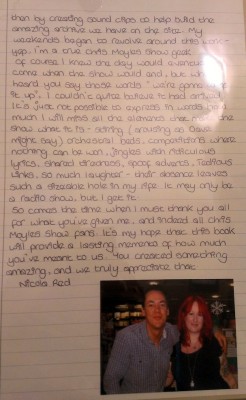 then by creating sound clips to help build the
amazing archive we have on the site. My
weekends began to revolve around this work-
yep, i'm a true Chris Moyles Show geek.
Of course I knew the day would eventually
come when the show would end, but when I
heard you say those words " we're gonna wrap
it up", I couldn't quite believe it had
It's just not possible to express in words how
much I will miss all the elements that made the
show what it is - adring (arousing as Dave
might say) orchestral beds, competitions where
nothing can be won, jingles with ridiculous
lyrics, shared dreariness, spoof adverts, Tedious
Links, so much laughter - their absence leaves
such a sizeable hole in my life. It may only be
a radio show, but I get it.
So comes the time when I must thank you all
for what you've given me.. and indeed all Chris
Moyles Show fans. It's my hope that this book
will provide a lasting memento of how much
you've meant to us. You created something
amazing, and we truly appreciate that
Nicola Red